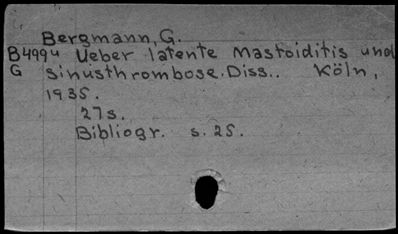 Bergmann, G.
B499u Ueber latente Mastoiditis und
G sinusthrombose. Diss.. Köln,
1935.
27s.
Bibliogr. s. 25.